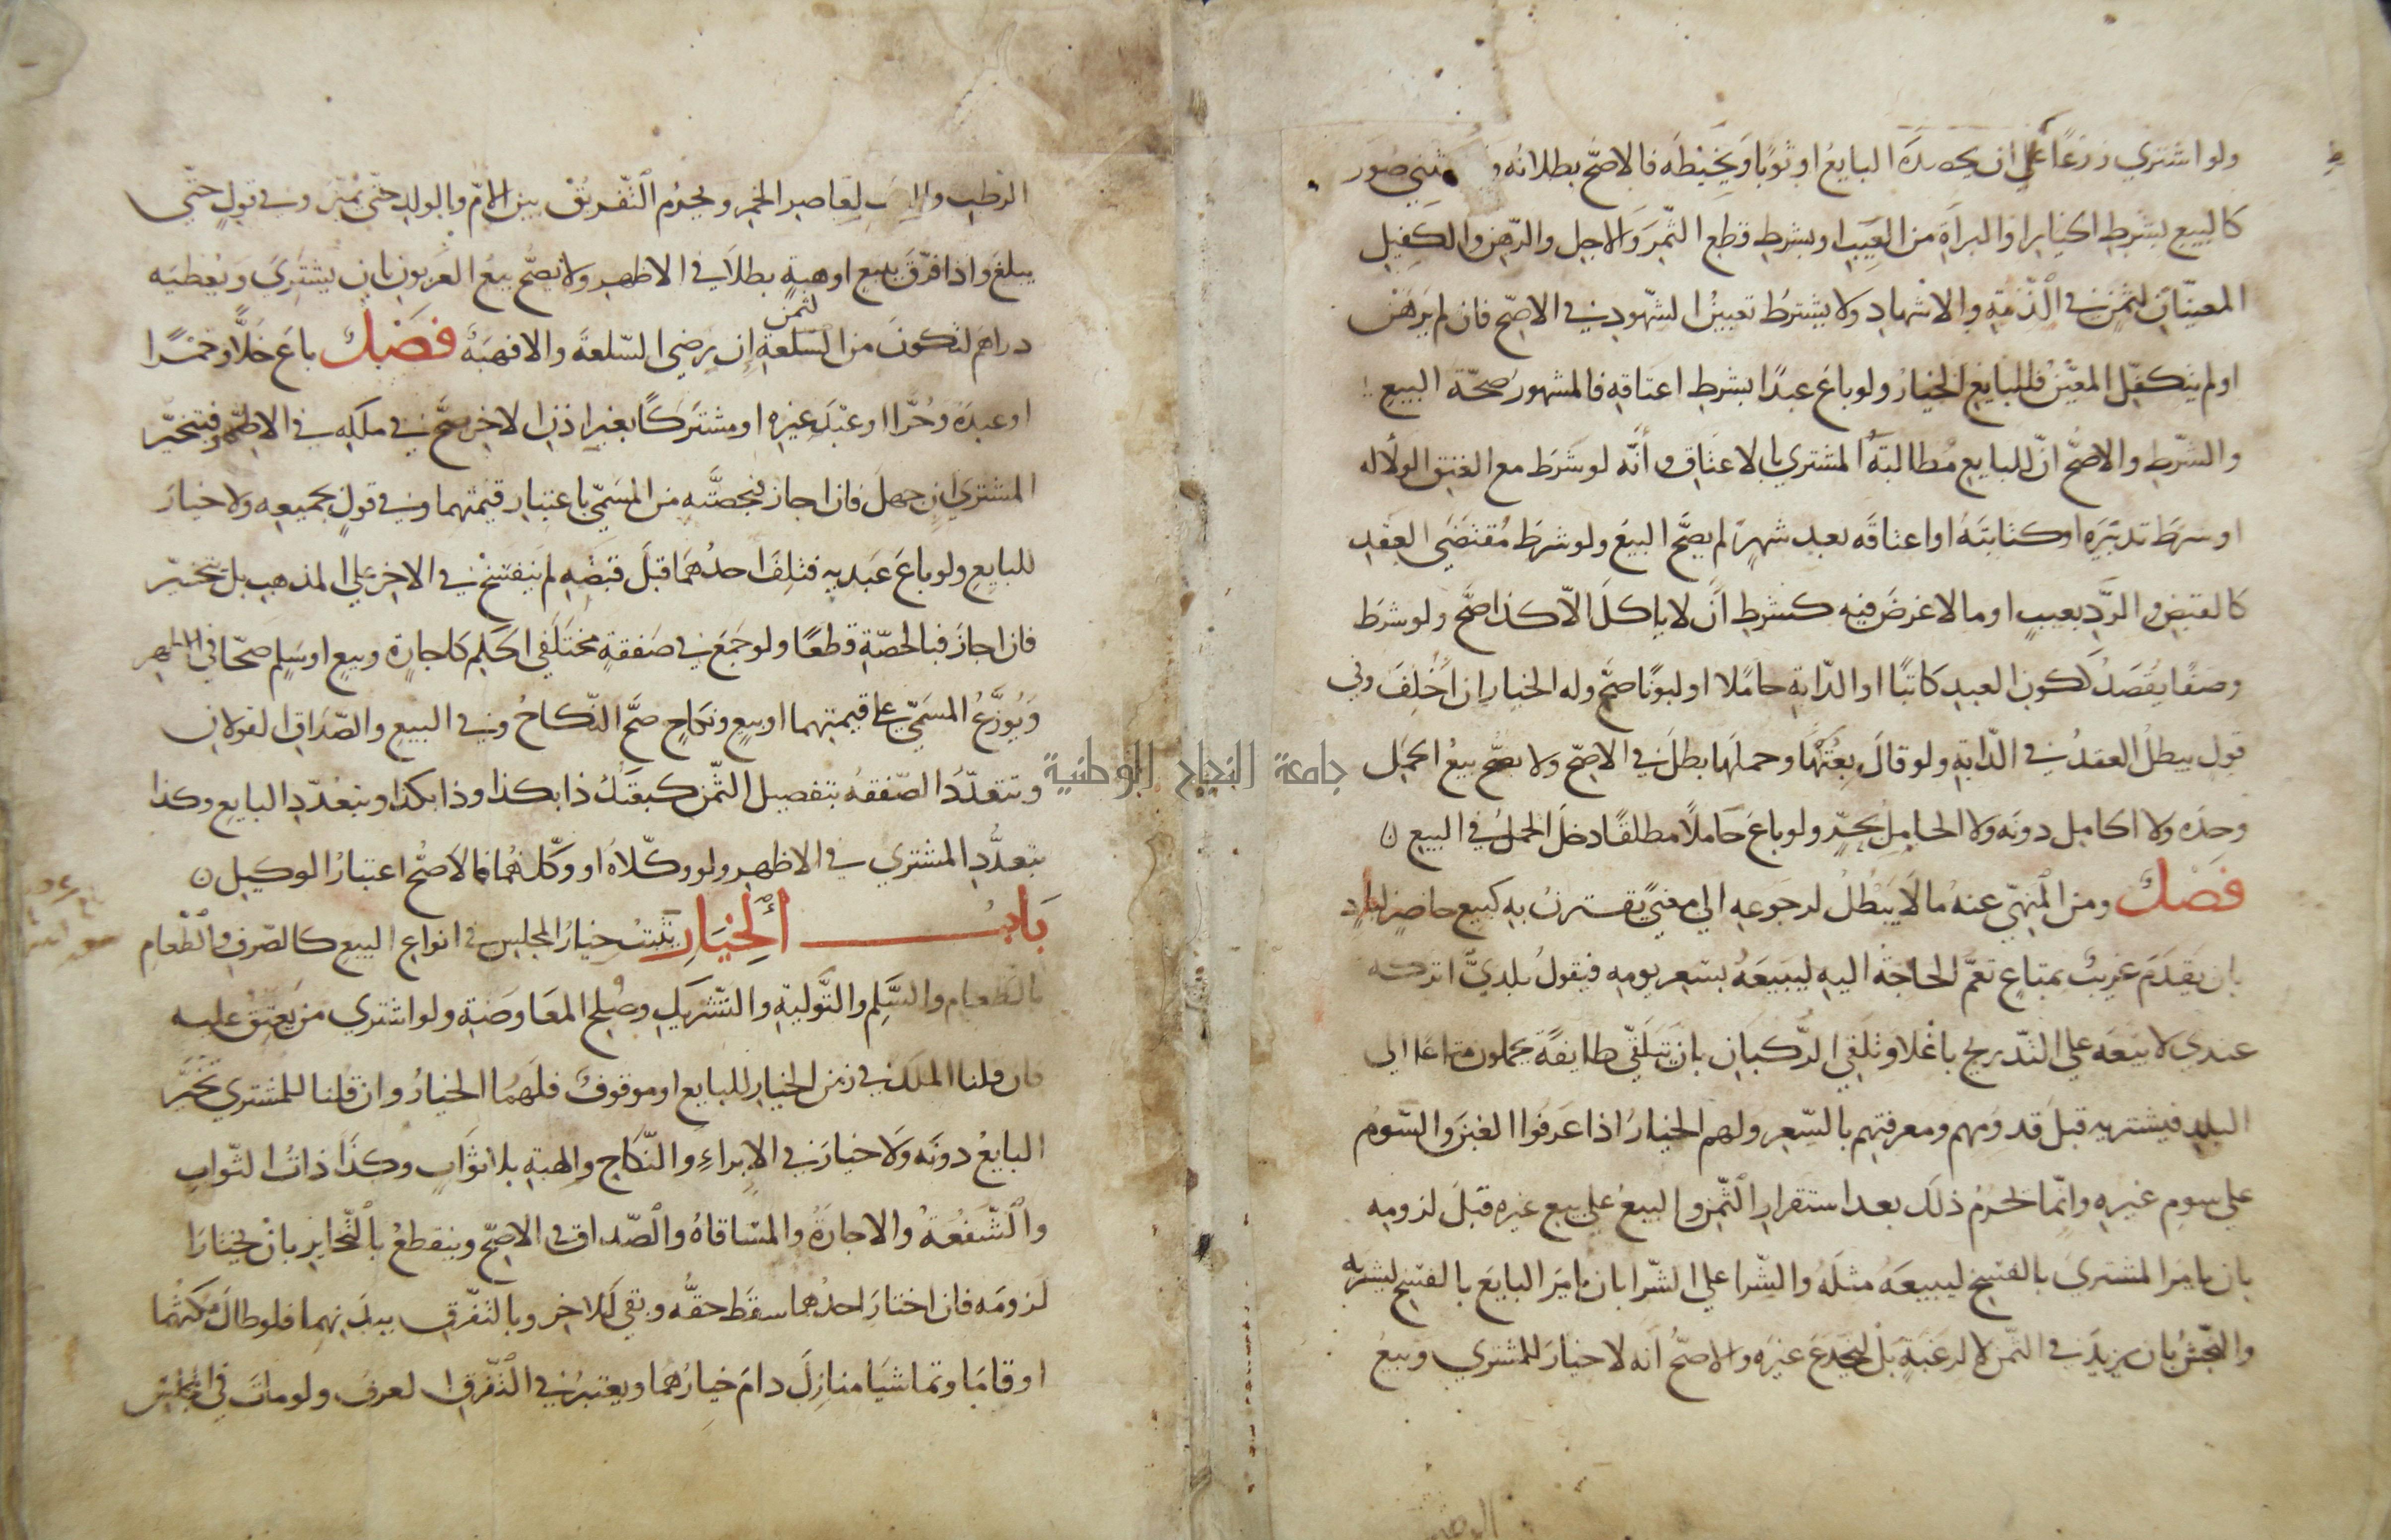 ولو اشتري زرعًا علي ان يحصده البايعُ او ثوبًا ويخيْطَه فالاصحّ بطلانُه و ثني صُوَر
كالبيع بشرطِ الخيار او البراَةِ من العَيبِ او بشرطِ قطعِ الثّمَرَ وَالاجل والرّهنِ والكفيلِ
المعيّناتِ لثمنٍ في الذّمّةِ والاشهادِ ولا يشترطُ تعيينُ الشّهودِ في الاصحّ فان لم يَرهَنْ
او لم يتكفّل المعيّنُ فللبايعِ الخيارُ ولو باعَ عبدًا بشرطِ اعتاقِه فالمشهورُ صحّة البيعِ
والشّرطِ والاصحُّ انّ للبايعِ مُطالبَةَ المشتري بالاعتاقِ وأنّه لو شَرَط مع العتق الولأ له
او شرَطَ تدبيَره او كتابتَهُ او اعتاقَه بعد شهرٍ لم يصحَّ البيعَ ولو شرطَ مُقتضَي العقدِ
كالقبضِ والرَّدِ بعيبٍ او ما لا غرضَ فيه كشرطِ أن لا يأكلَ الّا كذا صحَّ ولو شرَط
وصفًا يُقصَدُ ككونِ العبدِ كاتبًا او الدّابةِ حاملًا او لبونًا صحّ وله الخيار ان اُخْلِفَ وفي
قول يبطلُ العقدُ في الدّابةِ ولو قالَ بِعْتُكهَا وحملَها بطلَ في الاصحّ ولا يصحّ بيعُ الحمَل
وحدَه ولا الحامل دونَه ولا الحاملِ بحُرٍّ ولو باعَ حَاملًا مطلقًا دخلَ الحملُ في البيع ن
فصْلٌ ومن المنهيّ عنهُ ما لَا يبْطُلُ لرجوعِهِ الي معنيً يقترنُ بِهِ كبيع حاضِرٍ لبادٍ
بان يَقدَمَ غريبٌ بمتاعٍ تعمّ الحاجَةُ اليه ليبيعَهُ بسِعرِ يومِه فيقولُ بلديٌّ اتركه
عندي لابيعَه علي التّدريج باغلا وتلَقّي الرّكبَان بان يَتلَقّي طايفةً يحملون متاعًا الي
البلدِ فيشتريه قبلَ قدومهم ومعرفتِهم بالسّعِر ولهم الخيارُ اذا عَرفُوا الغبنَ والسّومُ
علي سومِ غيرهِ وانّما يحرمُ ذلك بعد استقرارِ الثّمن والبيعُ علي بيع غيره قبلَ لزومِه
بان يامُرَ المشتريَ بالفسخ ليبيعَهُ مثلَهُ والشّرا علي الشّرا بان يامرَ البايعَ بالفسخِ ليشتريه
والنّجشُ بان يزيدَ في الثّمن لا لرغبةٍ بَلْ ليَخْدعَ غيرَه والاصحُّ انه لا خيارَ للمشتري وبيعُ
الرّطبِ والعنبِ لعَاصر الخمر ويحرُم التّفريْقُ بين الامّ والولدِ حتّي يُميّز وفي قولٍ حتّي
يبلغَ واذا فرّقَ ببيعٍ او هبةٍ بطلَا في الاظهر ولا يصحُّ بيعُ العَرَبون بان يشتَريَ ويُعْطيَه
دراهَم لتكونَ من ثمن السّلعةِ إن رَضي السّلعةَ والا فهبَةٌ فصْلٌ باعَ خَلًّا وخمرًا
او عبدَه وحُرًّا او عبْدَ غيرِه او مشترَكًا بغير اذنِ الاخرِ صحَّ في ملكِه في الاظهَر فيتخيّر
المشتري ان جهلَ فان اجازَ فبحصَّته من المسَمّي باعتبار قيمتهما وفي قولٍ بجميعِه ولا خيارَ
للبايع ولو باعَ عَبديه فتلِفَ احدُهمَا قبلَ قبضِهِ لم ينفسخْ في الاخرِ علي المذهبِ بل يتخيّر
فان اجازَ فبالحصّةِ قطعًا ولو جَمَعَ في صَفقةٍ مختَلفَي الحكم كاجارةٍ وبيعٍ او سَلمٍ صحّا في الاظهر
وَيُوزَّعُ المسَمّي علي قيمتِهما او بيعٍ ونكاحٍ صحَّ النّكاحُ وفي البيعِ والصّدَاقِ القولانِ
وتتعدّدُ الصّفقةُ بتفصيل الثّمن كبعتكَ ذا بكذا وذا بكذا وبتعدّدِ البايعِ وكذا
بتعدّدِ المشتري في الاظهر ولو وكّلاهُ او وكّلهُما فالاَصحُّ اعتبارُ الوكيل ن
بَابُ اْلخيَارِ يثبتُ خيارُ المجلسِ في انواع البيع كالصّرفِ والطّعامِ
بالطّعام والسَّلم والتَّوليَةِ والتّشريكِ وصُلح المعَاوضَةِ ولو اشتري من يَعتِقُ عليه
فان قلنا الملكُ في زمن الخيارِ للبايع او موقوفٌ فلهمُا الخيارُ وان قُلنا للمشتري تخَيَّرَ
البايعُ دونَه وَلَا خيارَ في الابراءِ والنّكاحِ والهبةِ بلا ثوَابٍ وكذَا ذاتُ الثّوابِ
والشّفعَةُ والاجارَةُ والمسَاقاةُ والصّداق في الاصحِّ وينقطعُ بالتّخايرِ بانْ يختارَا
لزومَه فان اختارَ احدُهما سقَطَ حقُّه وبَقي للاخرِ وبالتفّرقِ ببدَنِهما فلو طالَ مُكثُهُمَا
او قامَا وتماشيَا منازِلَ دامَ خيارُهُمَا ويعتبرُ في التّفرّقِ العرفُ ولو ماتَ في المجلسِ
جامعة النجاح الوطنية